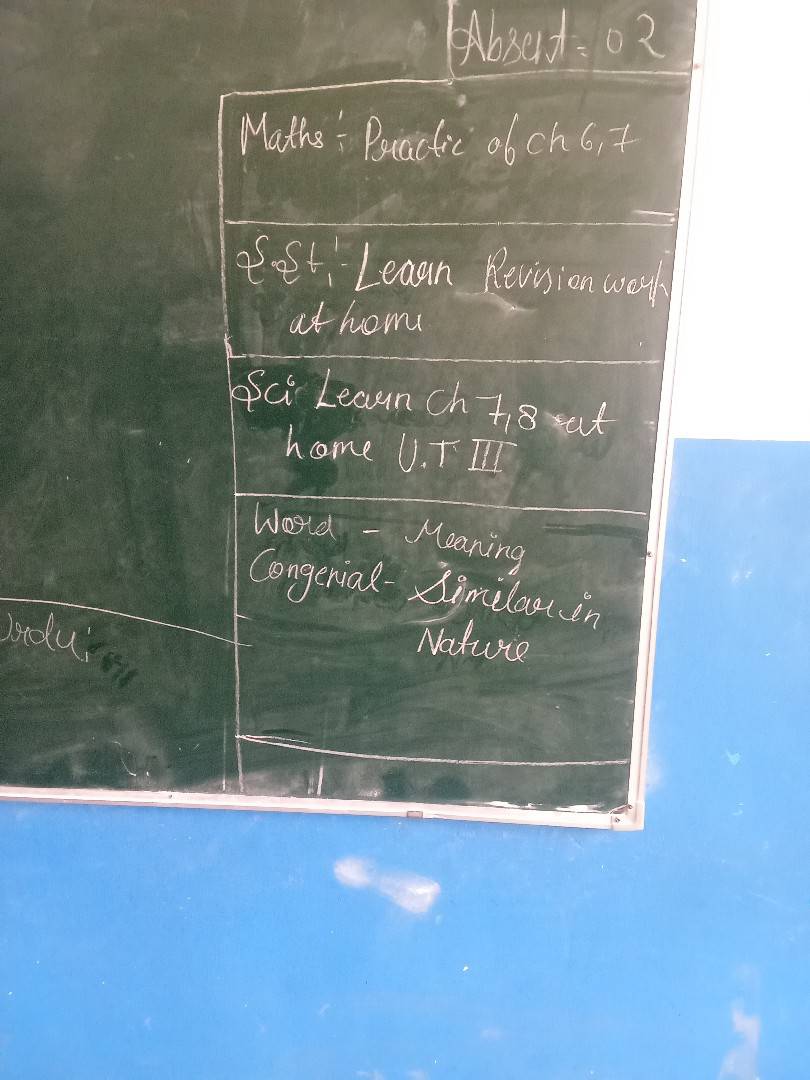 Absent = 02
Maths :- Practic of ch 6,7
S.St :- Learn Revision work
at home
Sci Learn Ch 7,8 at
home U.T III
Word - Meaning
Congenial - Similar in
Nature
Urdu: